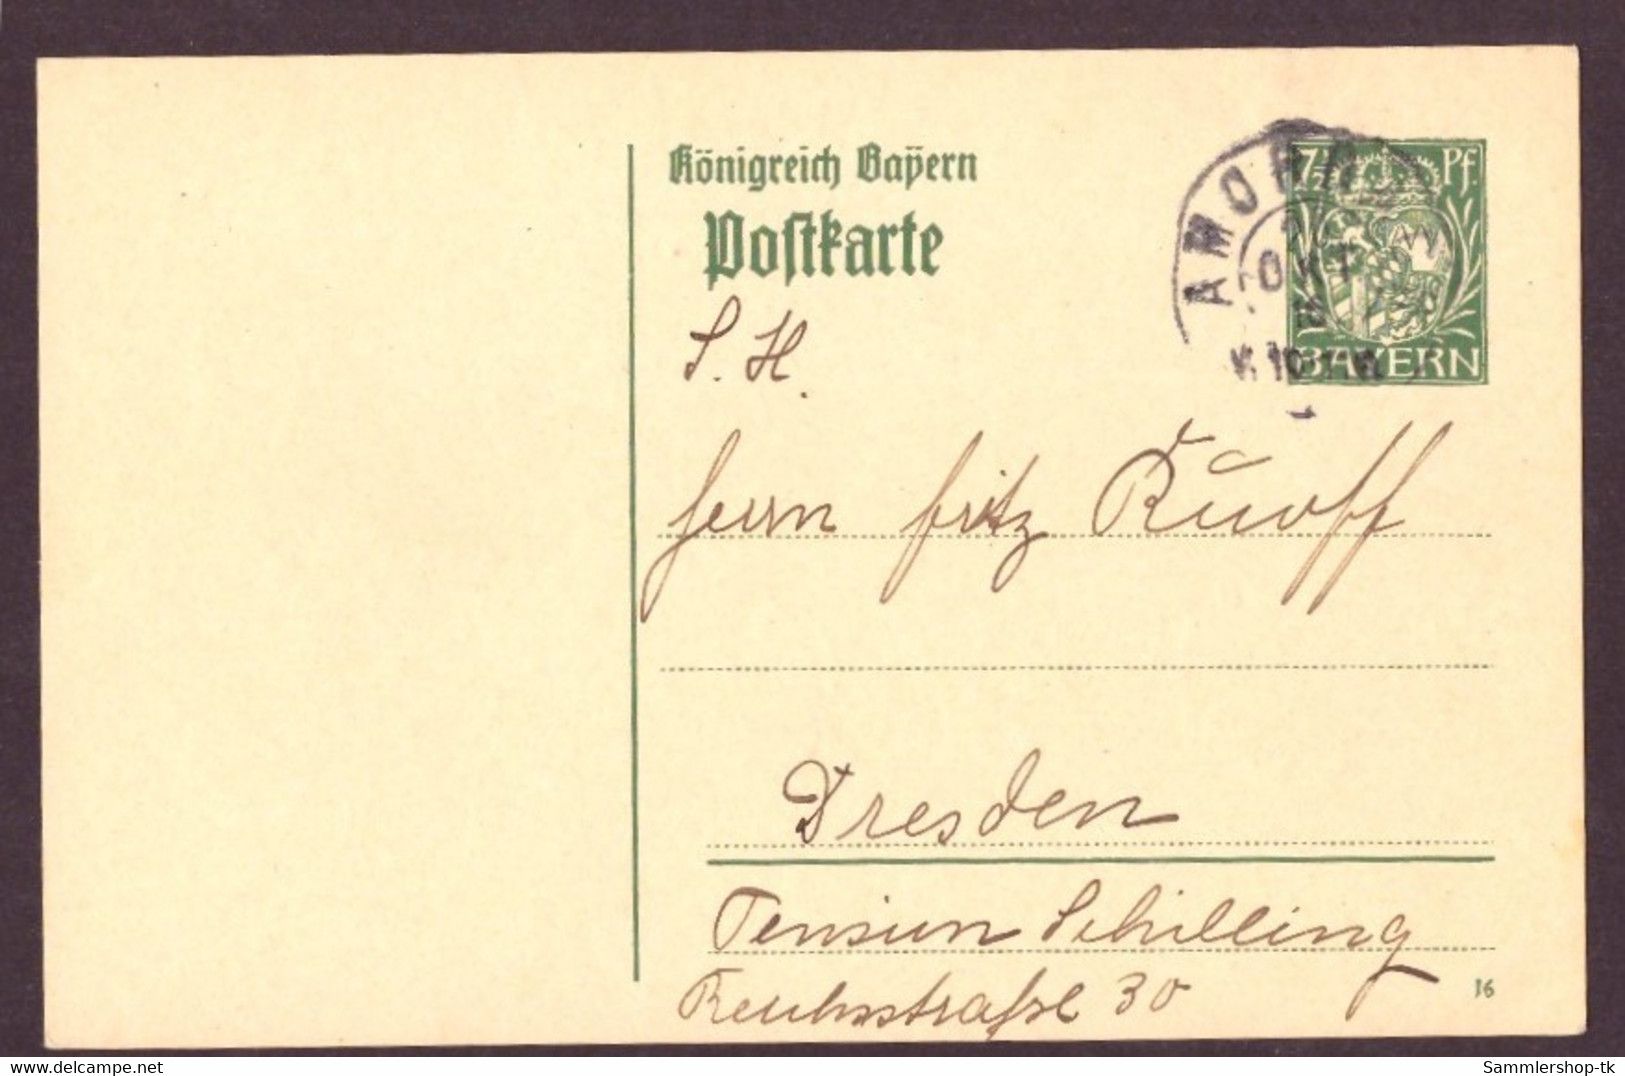 Königreich Bayern
Postkarte
7½ Pf.
BAYERN
AMORB
OKT
S. H.
Herrn Fritz Ruoff
Dresden
Pension Schilling
Reichsstraße 30
16
Sammlershop-tk